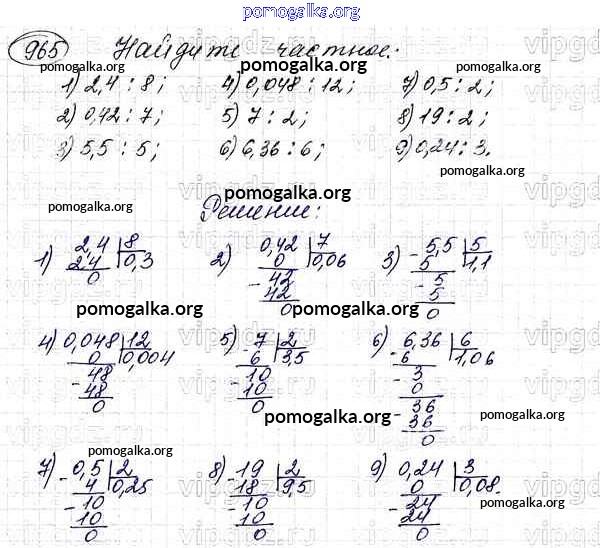 pomogalka.org
965 Найдите частное:
pomogalka.org pomogalka.org pomogalka.org
1) 2,4 : 8; 4) 0,048 : 12; 7) 0,5 : 2;
2) 0,42 : 7; 5) 7 : 2; 8) 19 : 2;
pomogalka.org pomogalka.org
3) 5,5 : 5; 6) 6,36 : 6; 9) 0,24 : 3.
pomogalka.org
pomogalka.org pomogalka.org
Решение:
1) 2,4 8 2) 0,42 7 3) 5,5 5
2 4 0,3 0 0,06 5 1,1
0 42 5
42 5
0 0
pomogalka.org pomogalka.org
4) 0,048 12 5) 7 2 6) 6,36 6
0 0,004 6 3,5 6 1,06
48 10 3
48 10 0
0 0 36
36
0
pomogalka.org pomogalka.org
pomogalka.org pomogalka.org
pomogalka.org pomogalka.org
7) 0,5 2 8) 19 2 9) 0,24 3
4 0,25 18 9,5 0 0,08.
10 10 24
10 10 24
0 0 0
pomogalka.org pomogalka.org
pomogalka.org